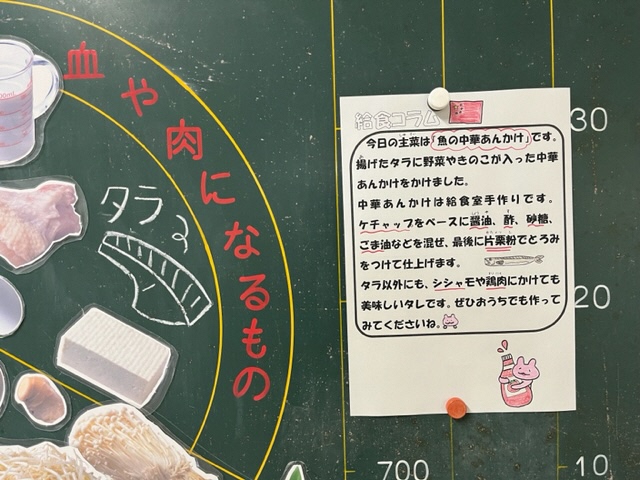 血や肉になるもの
タラ
給食コラム
今日の主菜は「魚の中華あんかけ」です。
揚げたタラに野菜やきのこが入った中華
あんかけをかけました。
中華あんかけは給食室手作りです。
ケチャップをベースに醤油、酢、砂糖、
ごま油などを混ぜ、最後に片栗粉でとろみ
をつけて仕上げます。
タラ以外にも、シシャモや鶏肉にかけても
美味しいタレです。ぜひおうちでも作って
みてくださいね。
30
20
700
10